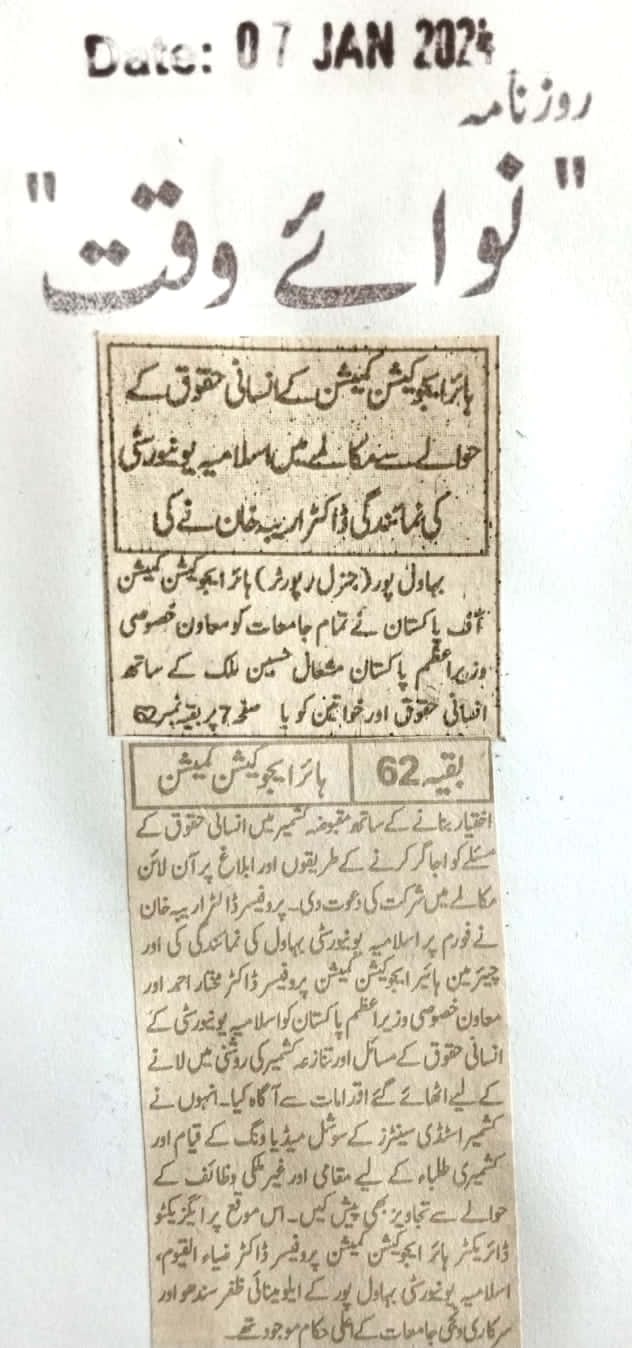 Date: 07 JAN 2024
روزنامہ
"نوائے وقت"
ہائر ایجوکیشن کمیشن کے انسانی حقوق کے
حوالے سے مکالمے میں اسلامیہ یونیورسٹی
کی نمائندگی ڈاکٹر اریبہ خان نے کی
بہاول پور (جنرل رپورٹر) ہائر ایجوکیشن کمیشن
آف پاکستان نے تمام جامعات کو معاون خصوصی
وزیراعظم پاکستان مشعال حسین ملک کے ساتھ
انسانی حقوق اور خواتین کو با صفحہ 7 پر بقیہ نمبر 62
بقیہ 62 ہائر ایجوکیشن کمیشن
اختیار بنانے کے ساتھ مقبوضہ کشمیر میں انسانی حقوق کے
مسئلے کو اجاگر کرنے کے طریقوں اور ابلاغ پر آن لائن
مکالمے میں شرکت کی دعوت دی۔ پروفیسر ڈاکٹر اریبہ خان
نے فورم پر اسلامیہ یونیورسٹی بہاول کی نمائندگی کی اور
چیئرمین ہائیر ایجوکیشن کمیشن پروفیسر ڈاکٹر مختار احمد اور
معاون خصوصی وزیراعظم پاکستان کو اسلامیہ یونیورسٹی کے
انسانی حقوق کے مسائل اور تنازعہ کشمیر کی روشنی میں لانے
کے لیے اٹھائے گئے اقدامات سے آگاہ کیا۔ انہوں نے
کشمیر اسٹڈی سینٹرز کے سوشل میڈیا ونگ کے قیام اور
کشمیری طلباء کے لیے مقامی اور غیر ملکی وظائف کے
حوالے سے تجاویز بھی پیش کیں۔ اس موقع پر ایگزیکٹو
ڈائریکٹر ہائر ایجوکیشن کمیشن پروفیسر ڈاکٹر ضیاء القیوم،
اسلامیہ یونیورسٹی بہاول پور کے ایلومینائی ظفر سندھو اور
سرکاری ونجی جامعات کے اعلی حکام موجود تھے۔